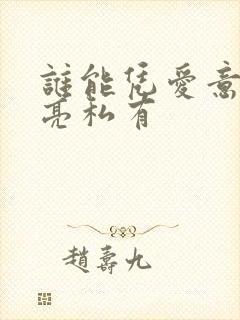 誰能凭愛意
亮私有
趙壽九